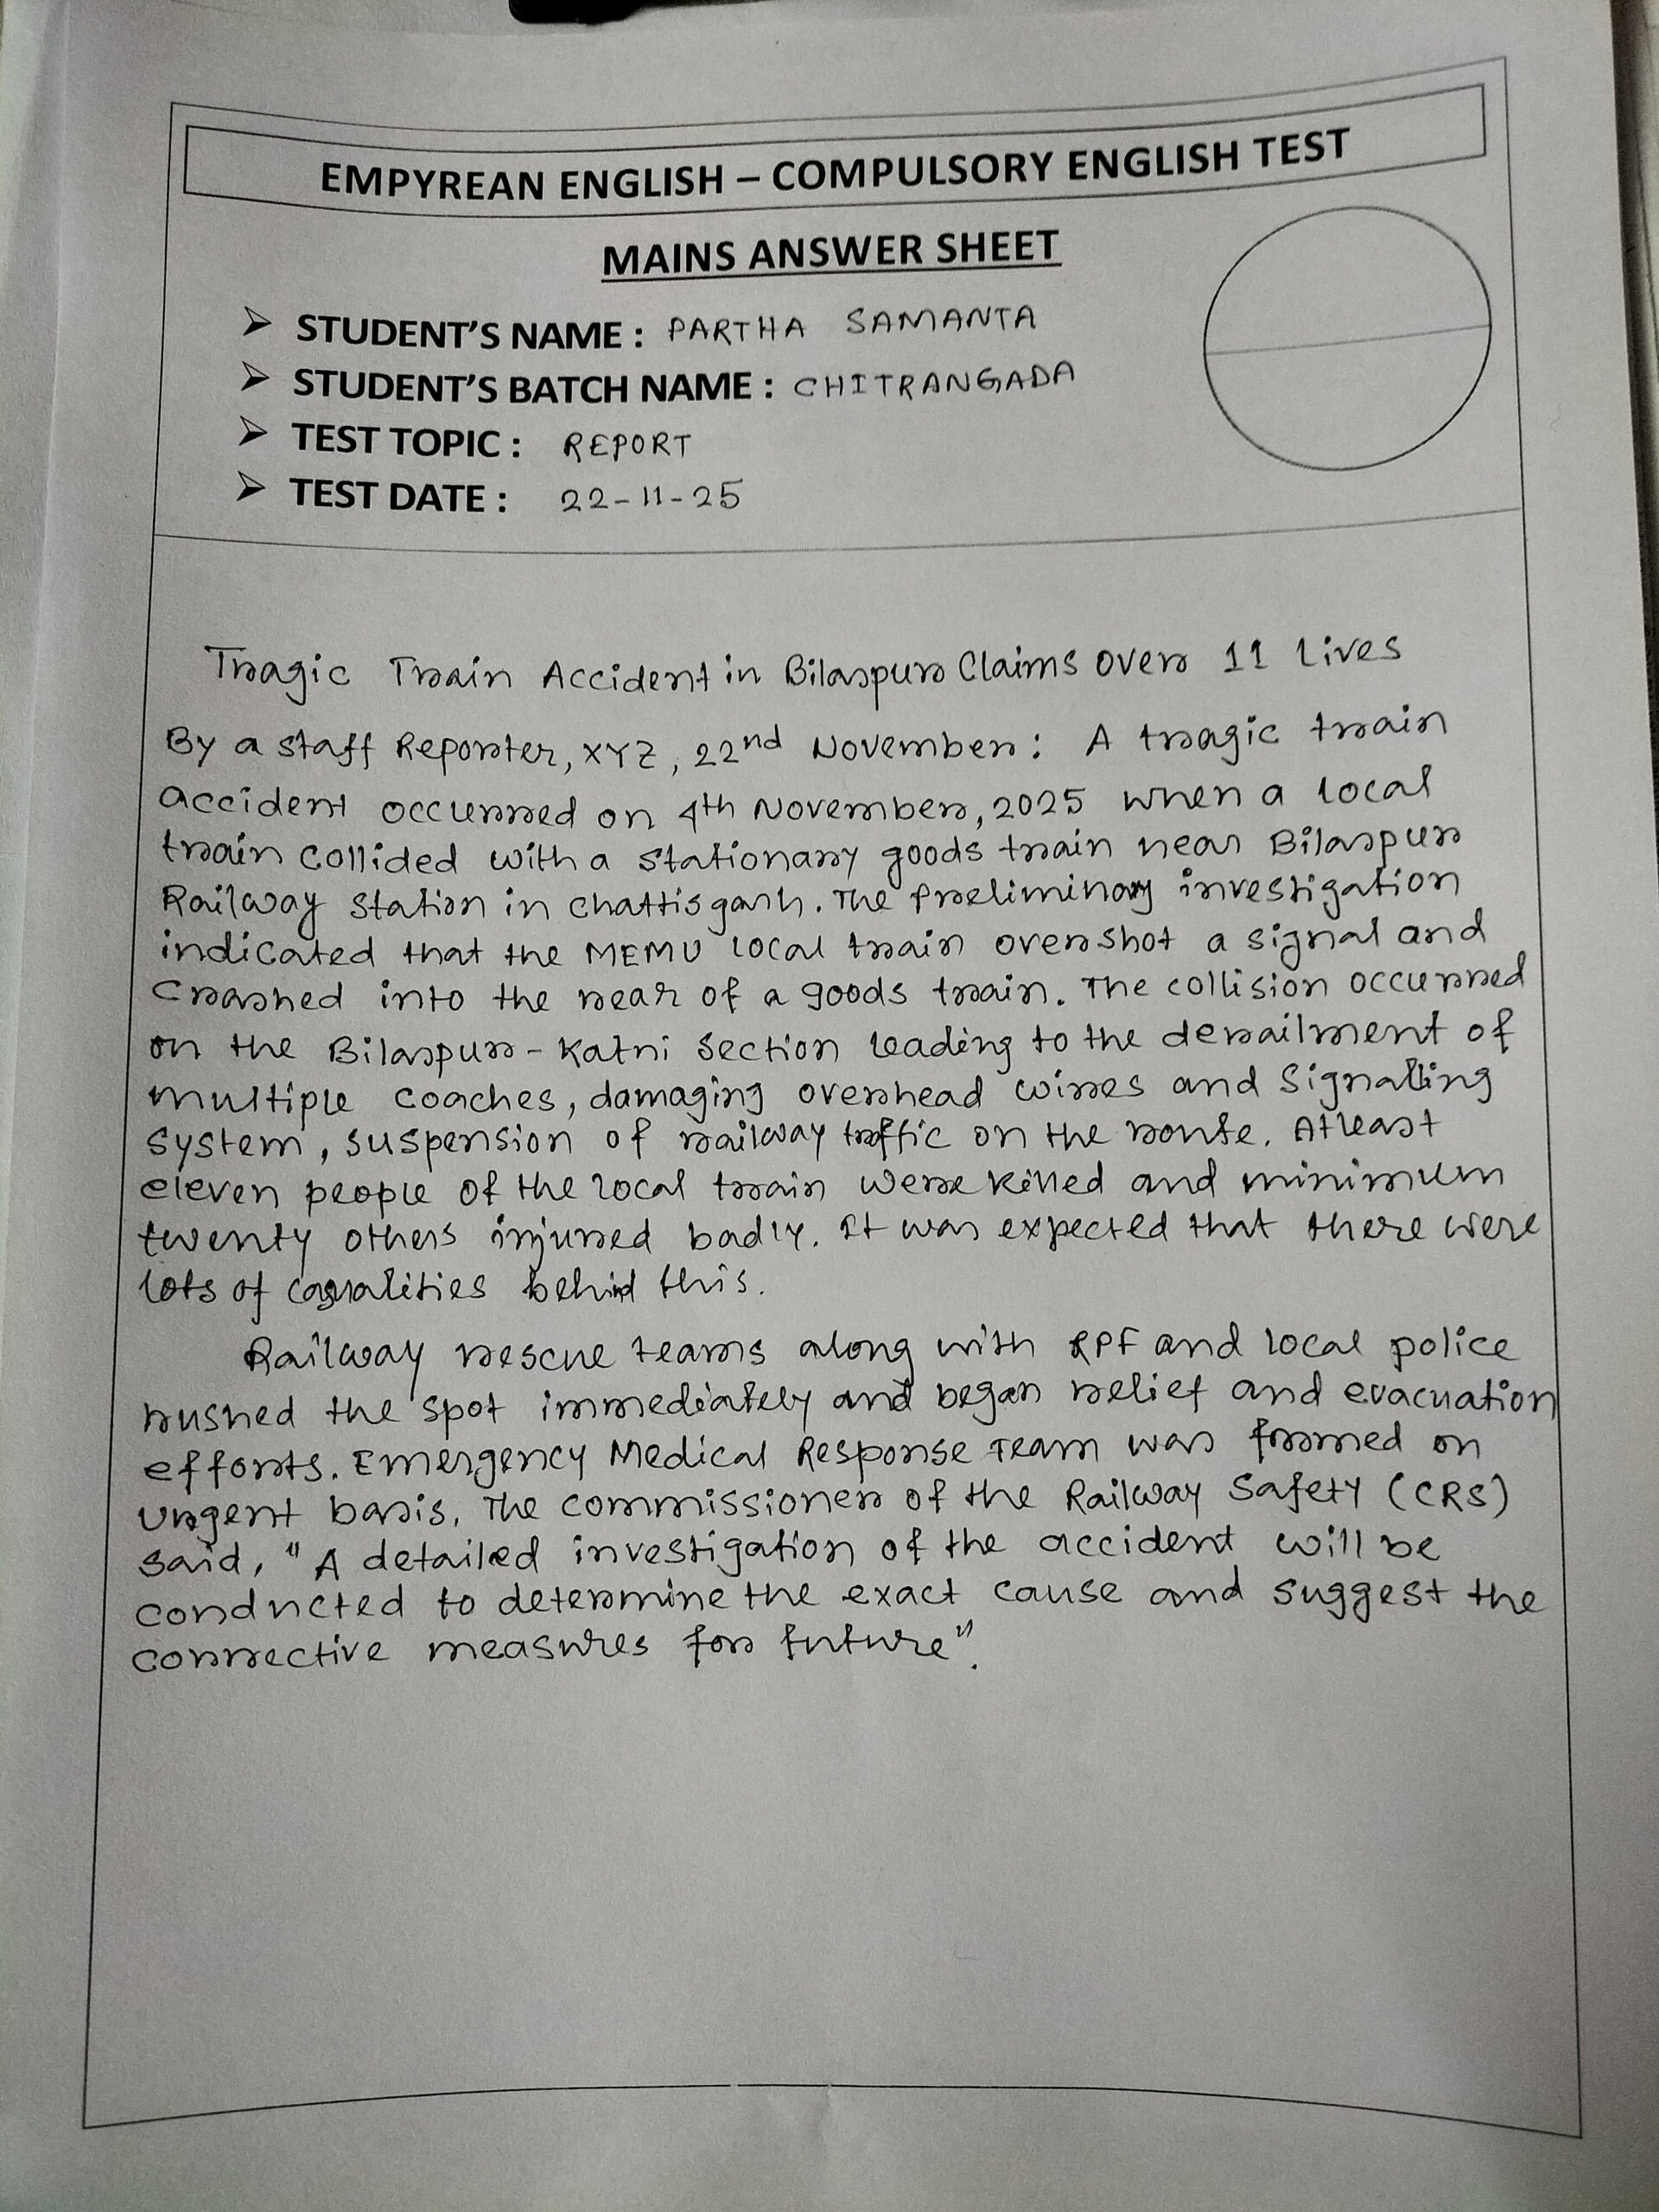 EMPYREAN ENGLISH – COMPULSORY ENGLISH TEST
MAINS ANSWER SHEET
➢ STUDENT'S NAME : PARTHA SAMANTA
➢ STUDENT'S BATCH NAME : CHITRANGADA
➢ TEST TOPIC : REPORT
➢ TEST DATE : 22-11-25
Tragic Train Accident in Bilaspur Claims over 11 Lives
By a staff Reporter, XYZ, 22nd November: A tragic train
accident occurred on 4th November, 2025 when a local
train collided with a stationary goods train near Bilaspur
Railway station in Chattisgarh. The Preliminary investigation
indicated that the MEMU local train overshot a signal and
crashed into the rear of a goods train. The collision occurred
on the Bilaspur-Katni section leading to the derailment of
multiple coaches, damaging overhead wires and Signalling
system, suspension of railway traffic on the route. Atleast
eleven people of the local train were killed and minimum
twenty others injured badly. It was expected that there were
lots of casualities behind this.
Railway rescue teams along with RPF and local police
rushed the spot immediately and began relief and evacuation
efforts. Emergency Medical Response Team was formed on
urgent basis. The commissioner of the Railway Safety (CRS)
said, "A detailed investigation of the accident will be
conducted to determine the exact cause and suggest the
corrective measures for future".